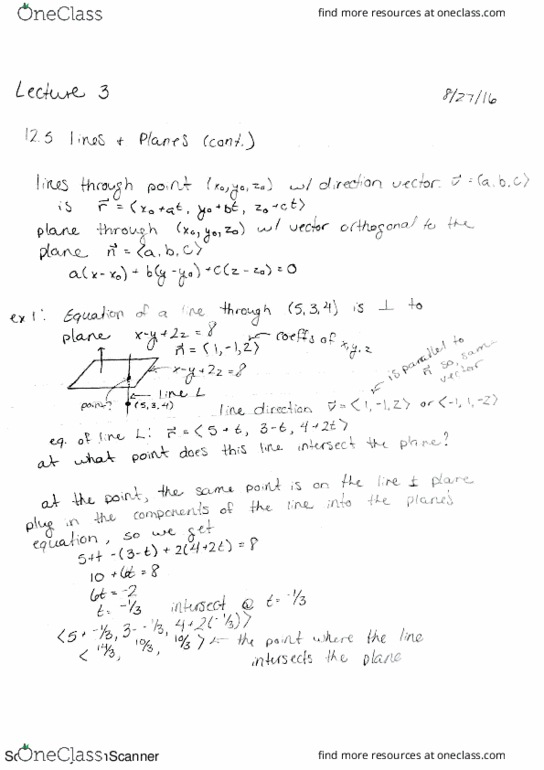 OneClass
find more resources at oneclass.com
Lecture 3
8/27/16
12.5 lines + Planes (cont.)
lines through point (x₀,y₀,z₀) w/ direction vector: v⃗ = ⟨a,b,c⟩
is r⃗ = ⟨x₀+at, y₀+bt, z₀+ct⟩
plane through (x₀,y₀,z₀) w/ vector orthogonal to the
plane n⃗ = ⟨a,b,c⟩
a(x-x₀) + b(y-y₀) + c(z-z₀) = 0
ex 1: Equation of a line through (5,3,4) is ⊥ to
plane x-y+2z = 8
n⃗ = ⟨1,-1,2⟩ ← coeffs of x,y,z
x-y+2z=8
line L
point?
(5,3,4)
is parallel to
n⃗ so, same
vector
line direction v⃗ = ⟨1,-1,2⟩ or ⟨-1,1,-2⟩
eq. of line L: r⃗ = ⟨5+t, 3-t, 4+2t⟩
at what point does this line intersect the plane?
at the point, the same point is on the line + plane
plug in the components of the line into the planes
equation, so we get
5+t -(3-t) + 2(4+2t) = 8
10 + 6t = 8
6t = -2
t = -1/3 intersect @ t = -1/3
⟨5+ -1/3, 3- -1/3, 4+2(-1/3)⟩
⟨14/3, 10/3, 10/3⟩ ← the point where the line
intersects the plane
OneClass
Scanner
find more resources at oneclass.com